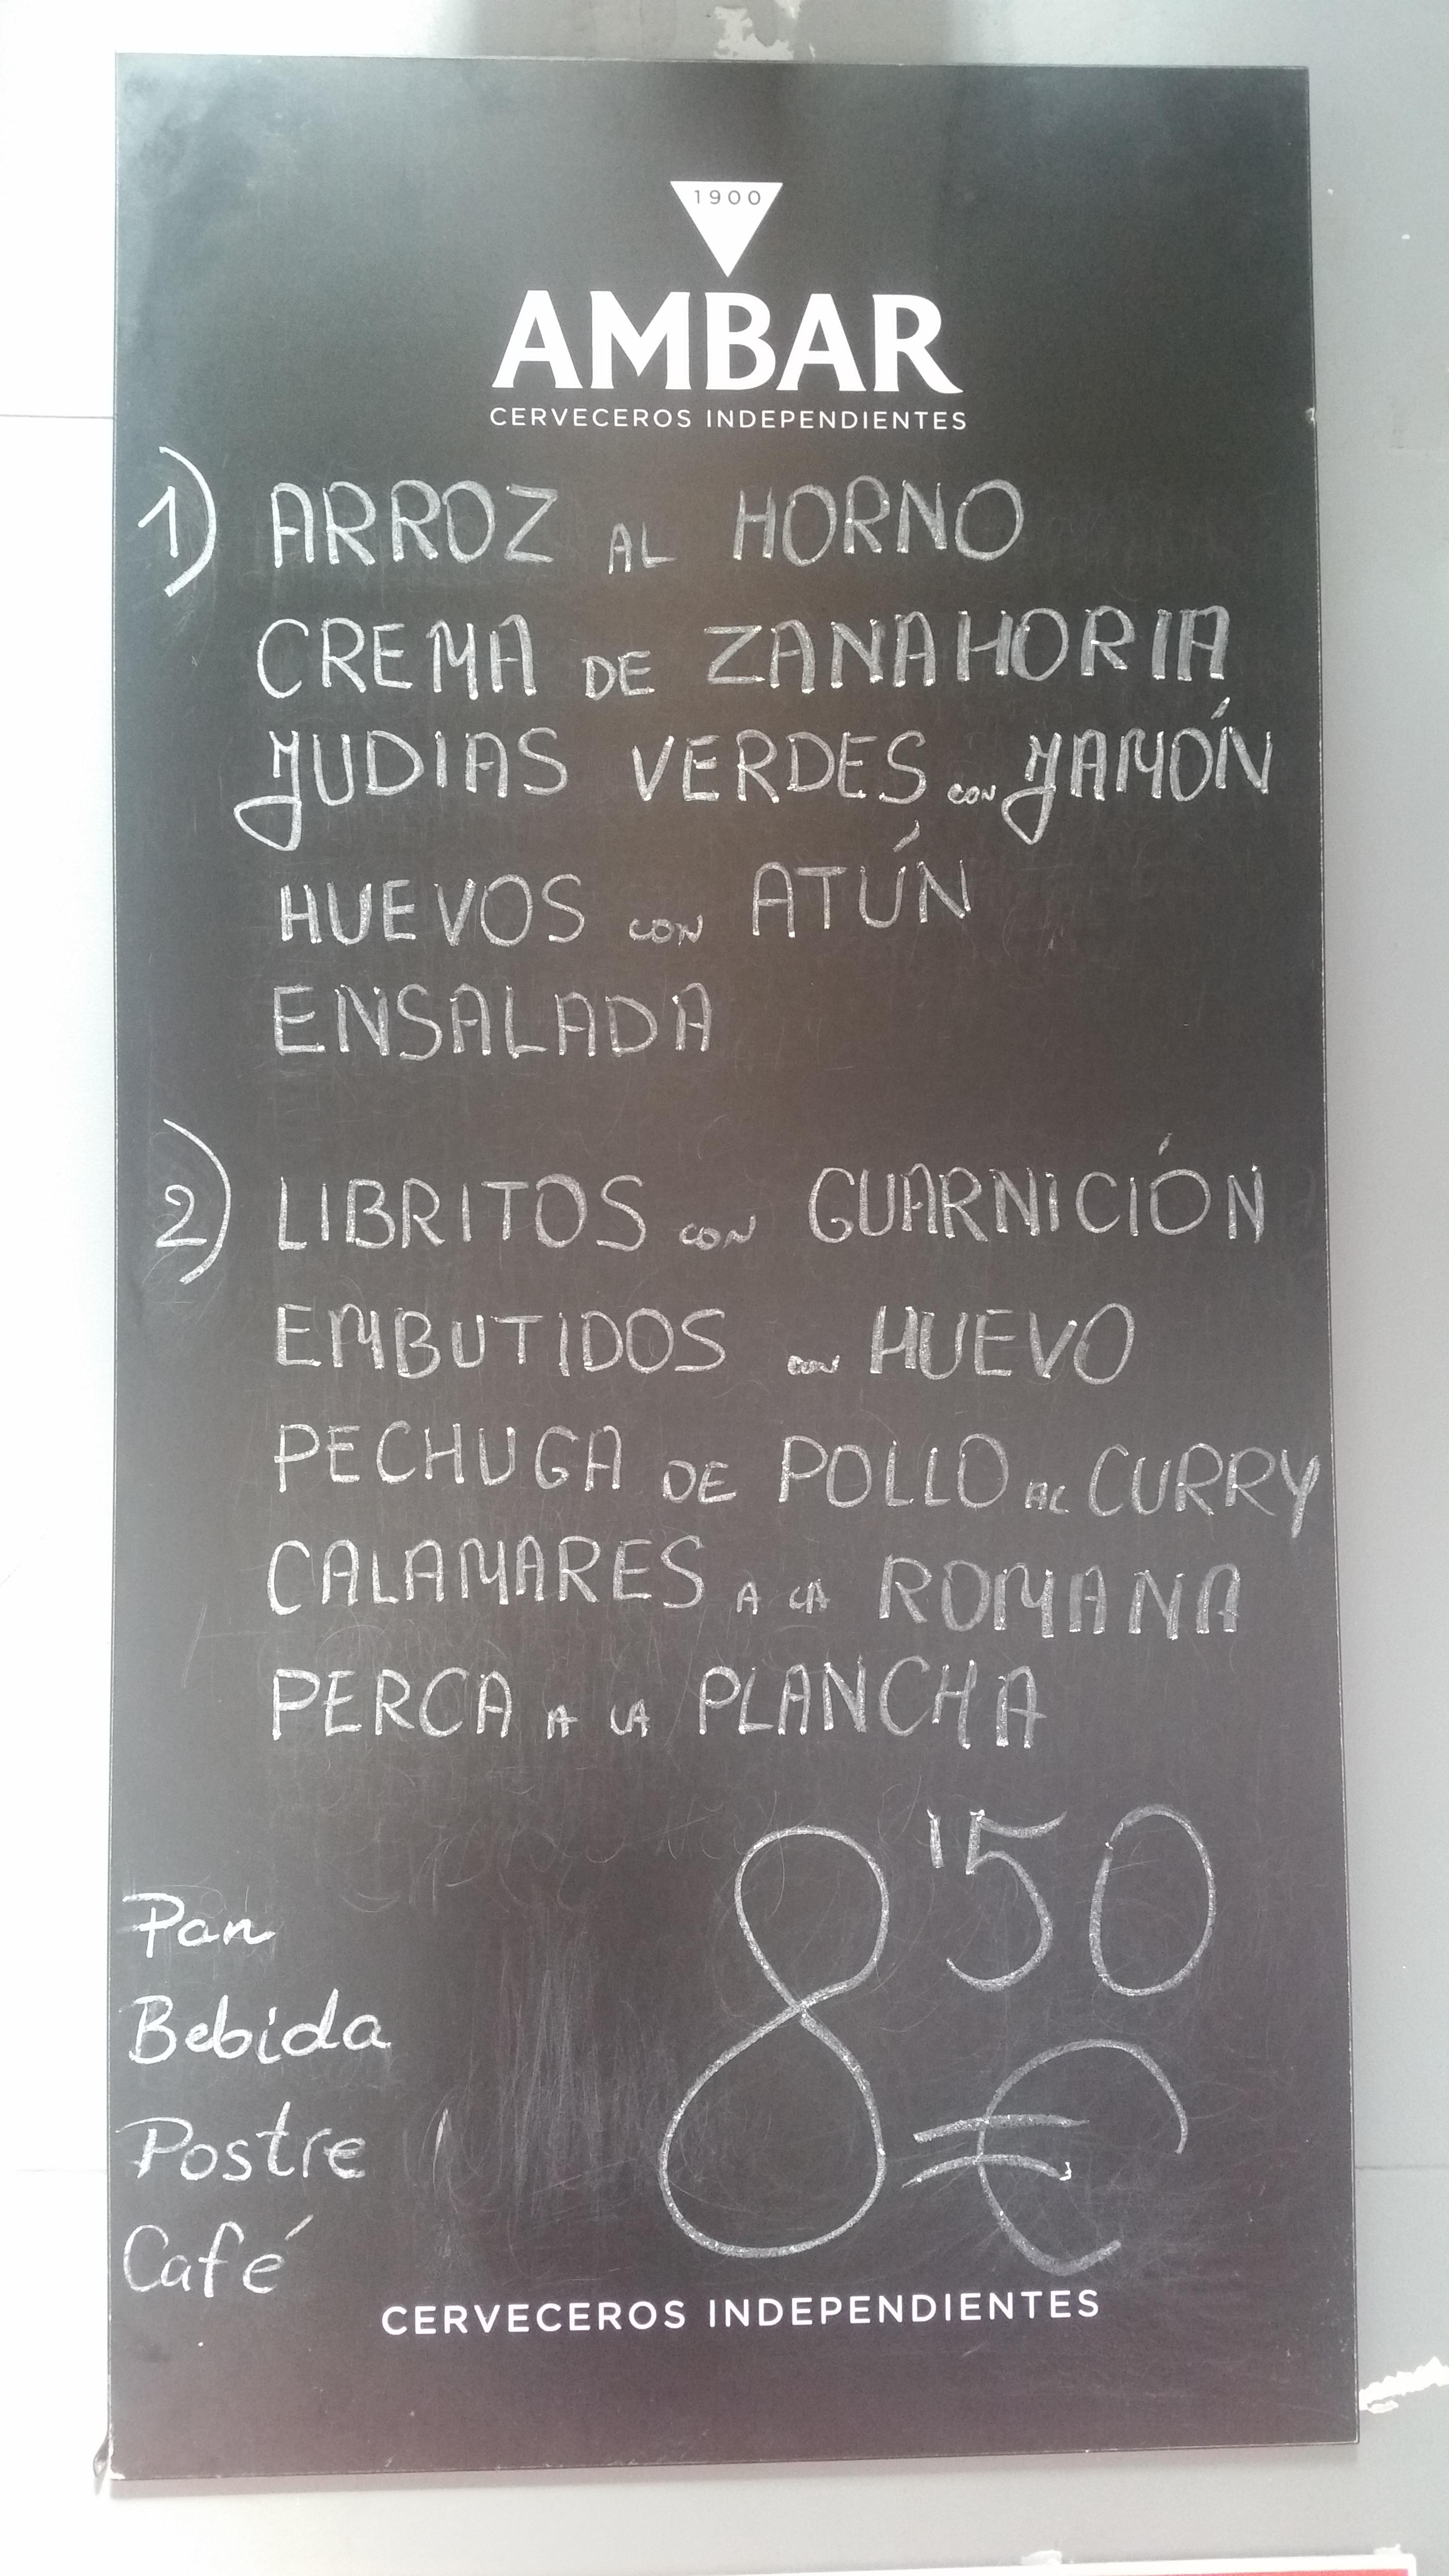 1900
AMBAR
CERVECEROS INDEPENDIENTES
1) ARROZ AL HORNO
CREMA DE ZANAHORIA
JUDIAS VERDES CON JAMÓN
HUEVOS CON ATÚN
ENSALADA
2) LIBRITOS CON GUARNICIÓN
EMBUTIDOS CON HUEVO
PECHUGA DE POLLO AL CURRY
CALAMARES A LA ROMANA
PERCA A LA PLANCHA
8'50 €
Pan
Bebida
Postre
Café
CERVECEROS INDEPENDIENTES